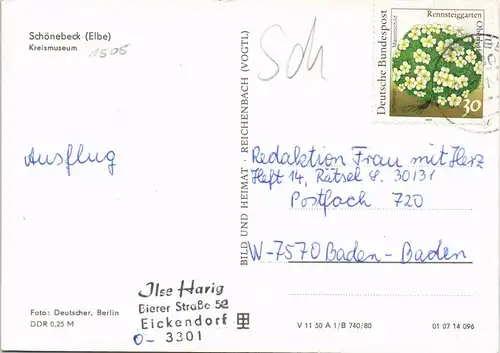 Schönebeck (Elbe)
Kreismuseum
1505
Sch
Ausflug
BILD UND HEIMAT · REICHENBACH (VOGTL)
Deutsche Bundespost
Rennsteiggarten
Oberhof
Mannsschild
30
Redaktion Frau mit Herz
Heft 14, Rätsel 8. 30131
Postfach 720
W-7570 Baden-Baden
Ilse Harig
Bierer Straße 52
Eickendorf
O- 3301
Foto: Deutscher, Berlin
DDR 0,25 M
V 11 50 A 1/B 740/80
01 07 14 096